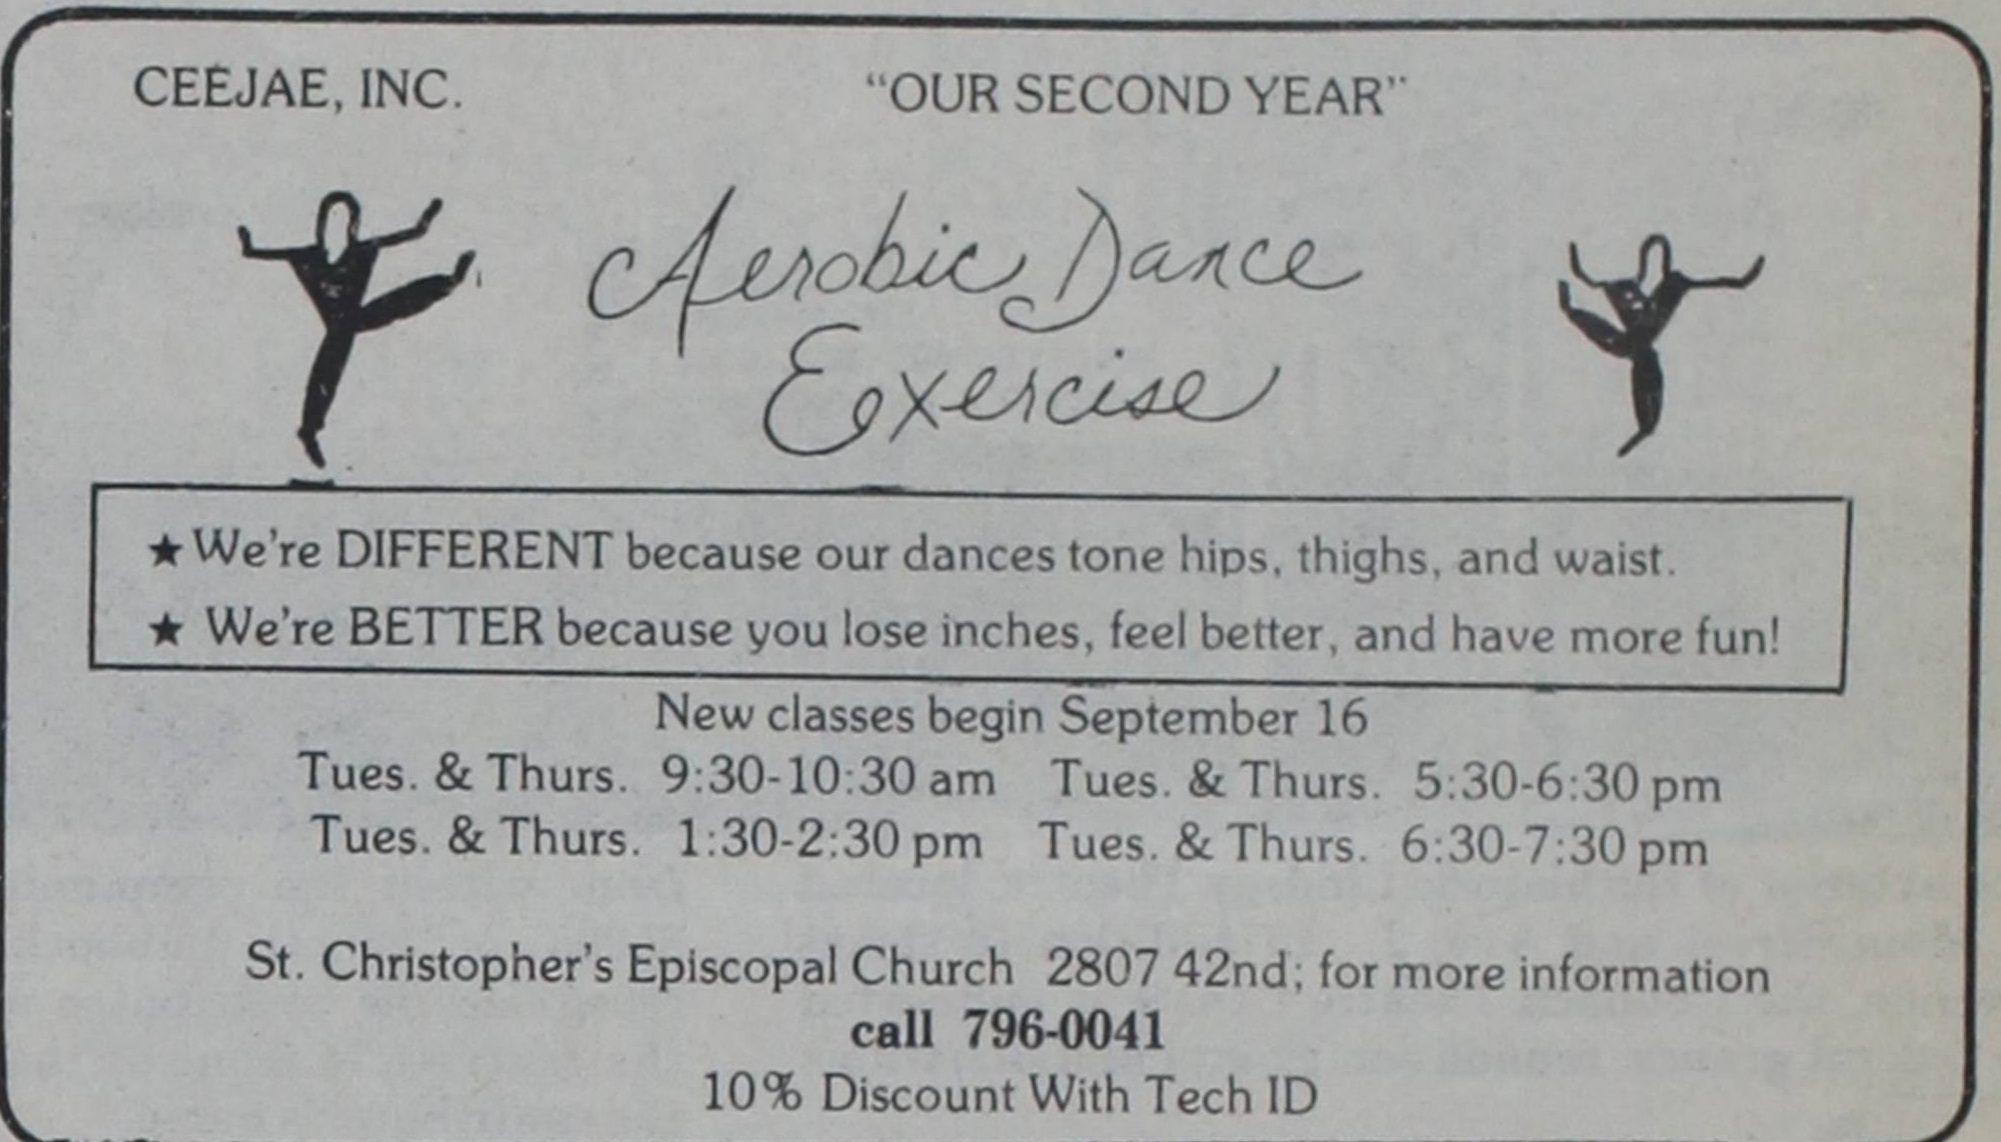 CEEJAE, INC. "OUR SECOND YEAR"
Aerobic Dance
Exercise
★ We're DIFFERENT because our dances tone hips, thighs, and waist.
★ We're BETTER because you lose inches, feel better, and have more fun!
New classes begin September 16
Tues. & Thurs. 9:30-10:30 am Tues. & Thurs. 5:30-6:30 pm
Tues. & Thurs. 1:30-2:30 pm Tues. & Thurs. 6:30-7:30 pm
St. Christopher's Episcopal Church 2807 42nd; for more information
call 796-0041
10% Discount With Tech ID